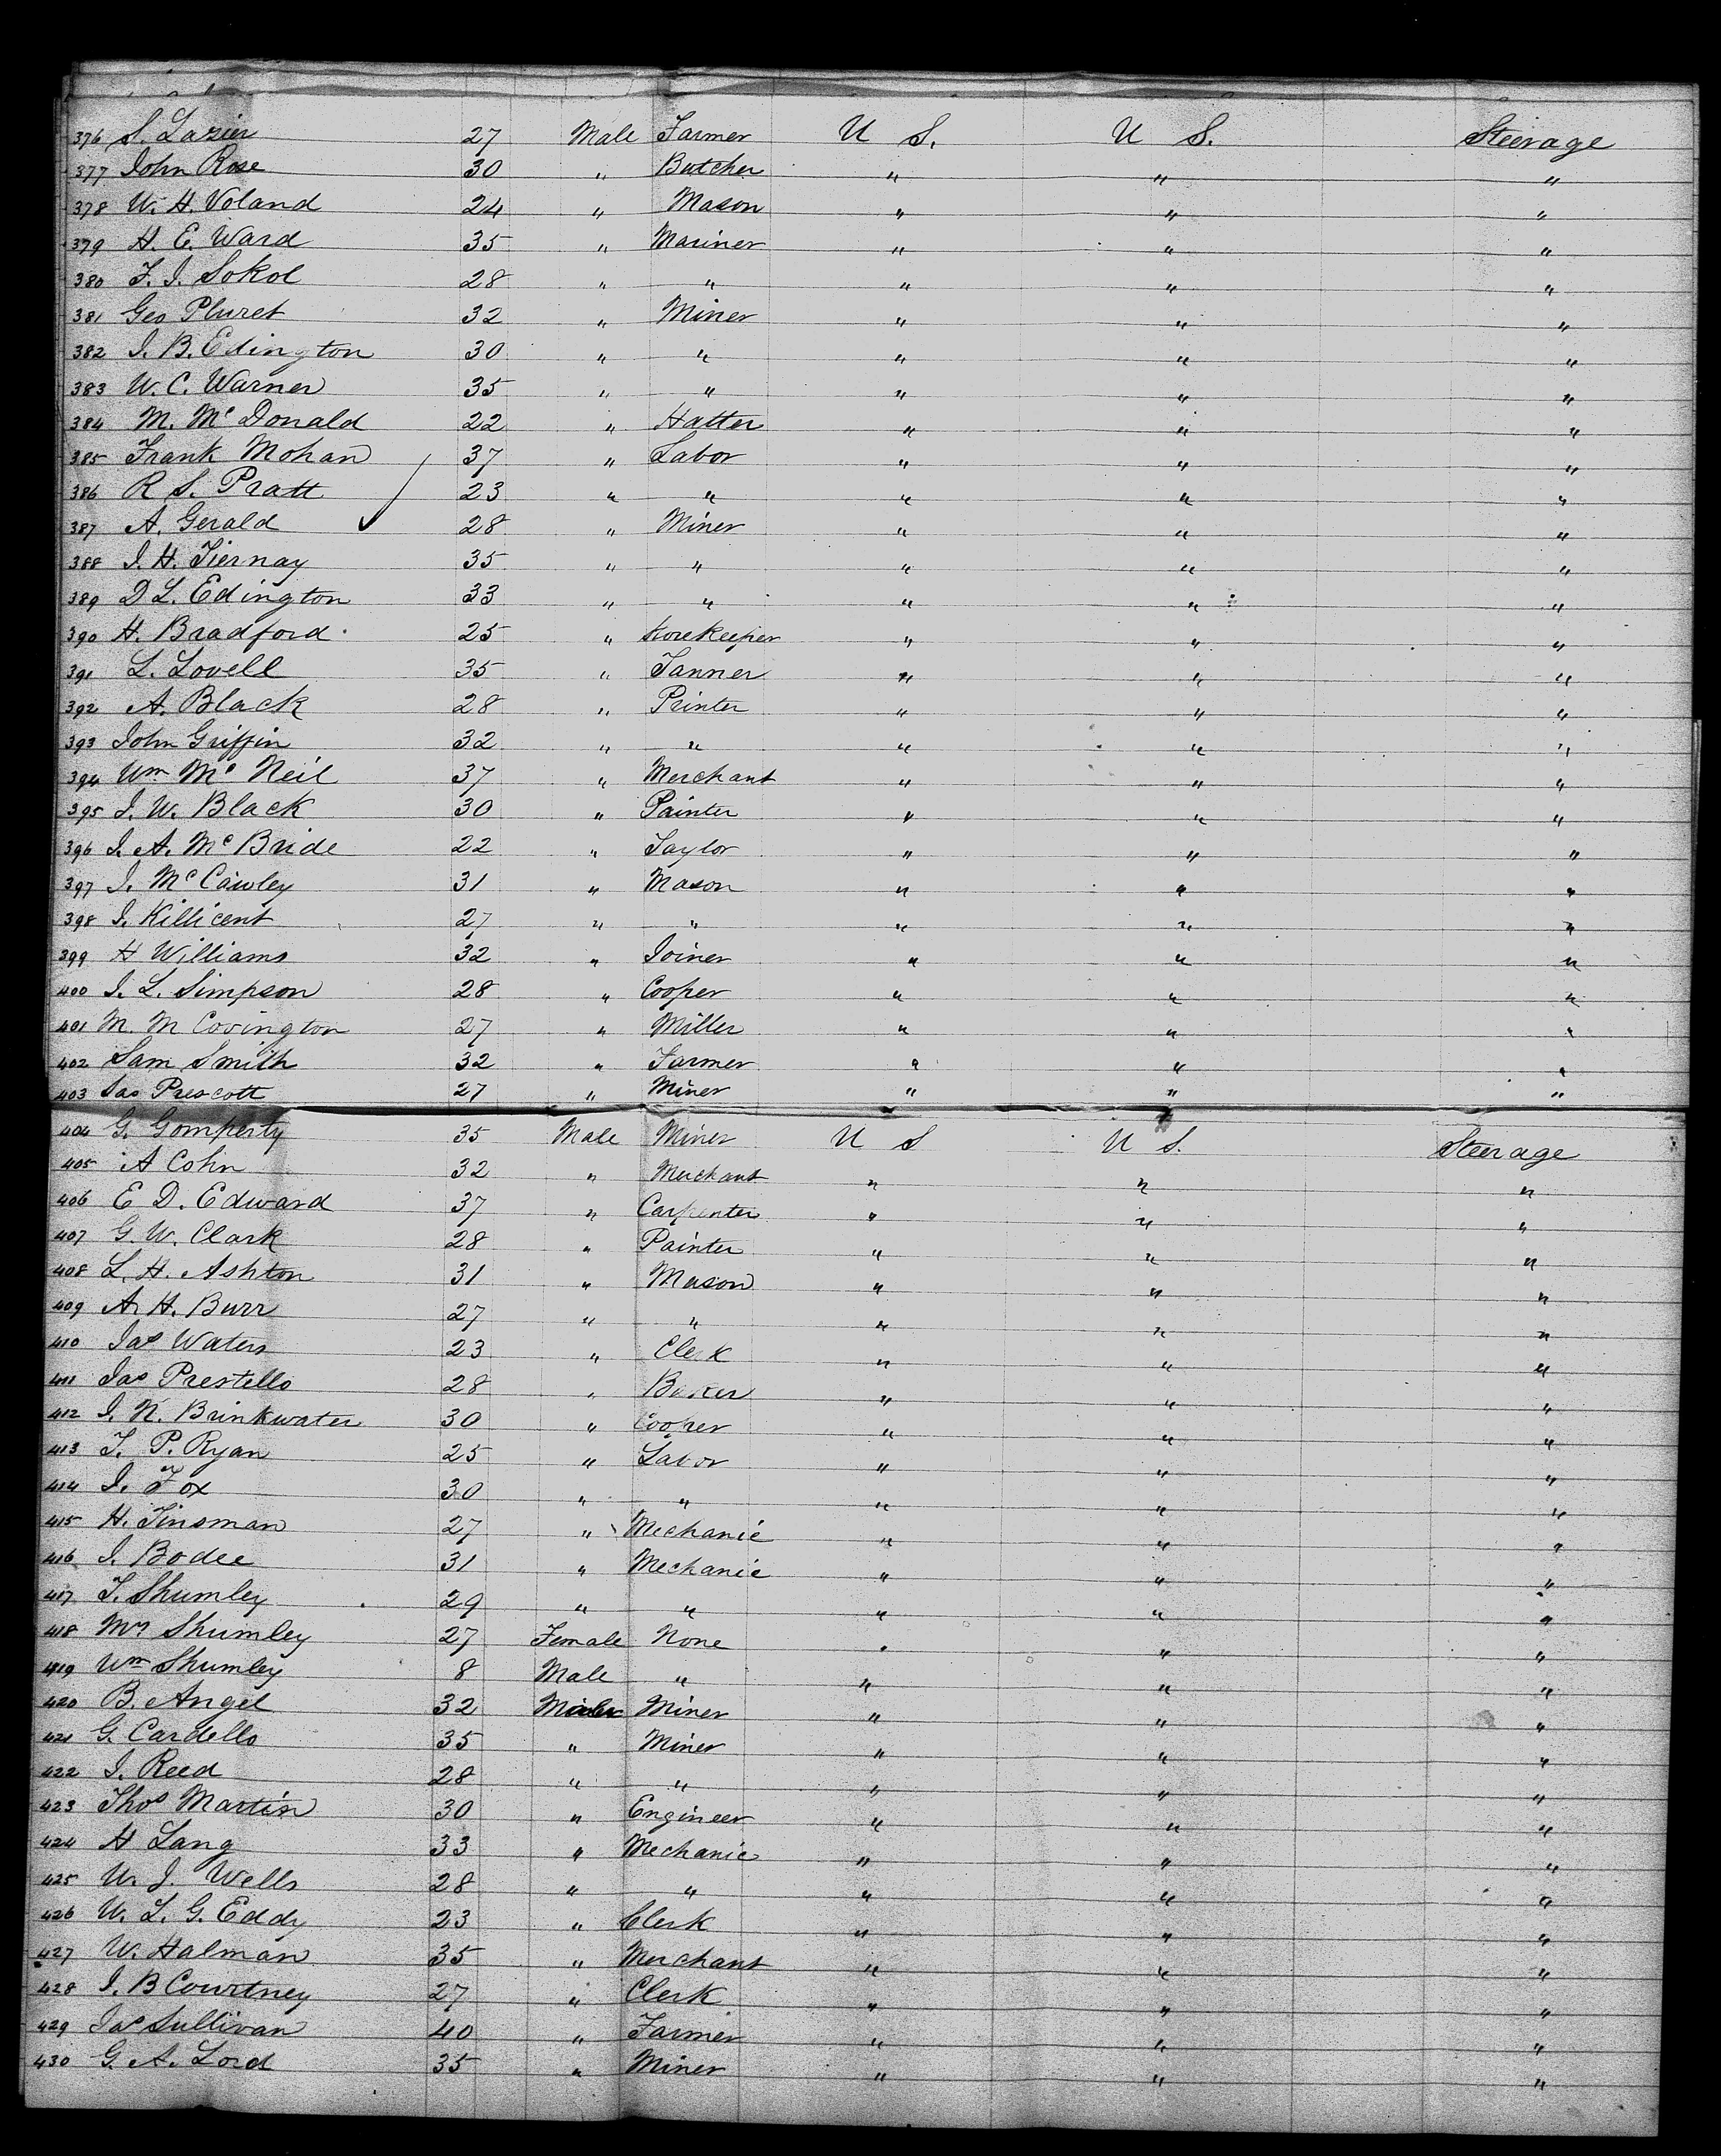 376 S. Lazier 27 Male Farmer U S. U S. Steerage
377 John Rose 30 " Butcher " " "
378 W. H. Voland 24 " Mason " " "
379 H. E. Ward 35 " Mariner " " "
380 F. J. Sokol 28 " " " " "
381 Geo Pluret 32 " Miner " " "
382 J. B. Edington 30 " " " " "
383 W. C. Warner 35 " " " " "
384 M. Mc Donald 22 " Hatter " " "
385 Frank Mohan 37 " Labor " " "
386 R S. Pratt 23 " " " " "
387 A. Gerald 28 " Miner " " "
388 J. H. Tiernay 35 " " " " "
389 D L. Edington 33 " " " " "
390 H. Bradford 25 " Storekeeper " " "
391 L. Lovell 35 " Tanner " " "
392 A. Black 28 " Printer " " "
393 John Griffin 32 " " " " "
394 Wm Mc Neil 37 " Merchant " " "
395 J. W. Black 30 " Painter " " "
396 J. A. Mc Bride 22 " Taylor " " "
397 J. Mc Cawley 31 " Mason " " "
398 J. Killicent 27 " " " " "
399 H Williams 32 " Joiner " " "
400 J. L. Simpson 28 " Cooper " " "
401 M. M Covington 27 " Miller " " "
402 Sam Smith 32 " Farmer " " "
403 Jas Prescott 27 " Miner " " "
404 G. Gomperty 35 Male Miner U S U S. Steerage
405 A Cohn 32 " Merchant " " "
406 E D. Edward 37 " Carpenter " " "
407 G. W. Clark 28 " Painter " " "
408 L. H. Ashton 31 " Mason " " "
409 A. H. Burr 27 " " " " "
410 Jas Waters 23 " Clerk " " "
411 Jas Prestello 28 " Baker " " "
412 J. K. Brinkwater 30 " Cooper " " "
413 T. P. Ryan 25 " Labor " " "
414 J. Fox 30 " " " " "
415 H. Tinsman 27 " Mechanic " " "
416 J. Bodee 31 " Mechanic " " "
417 T. Shumley 29 " " " " "
418 Mrs Shumley 27 Female None " " "
419 Wm Shumley 8 Male " " " "
420 B. Angel 32 Male Miner " " "
421 G. Cardello 35 " Miner " " "
422 J. Reed 28 " " " " "
423 Thos Martin 30 " Engineer " " "
424 H Lang 33 " Mechanic " " "
425 W. J. Wells 28 " " " " "
426 W. L. G. Eddy 23 " Clerk " " "
427 W. Halman 35 " Merchant " " "
428 J. B Courtney 27 " Clerk " " "
429 Jas Sullivan 40 " Farmer " " "
430 G. A. Lord 35 " Miner " " "